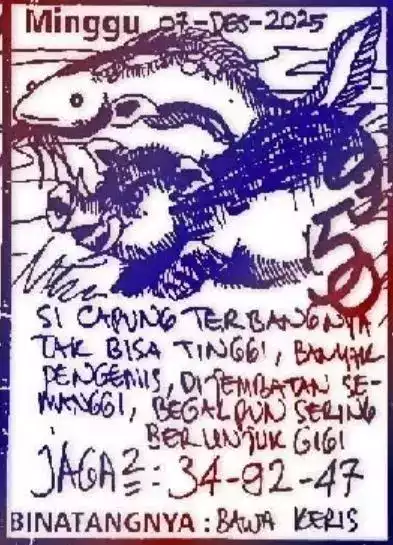 Minggu 07-DES-2025
SI CAPUNG TERBANGNYA
TAK BISA TINGGI, BANYAK
PENGEMIS, DIJEMBATAN SE-
MANGGI, BEGAL PUN SERING
BERUNJUK GIGI
JAGA2 = : 34-92-47
BINATANGNYA : BAWA KERIS